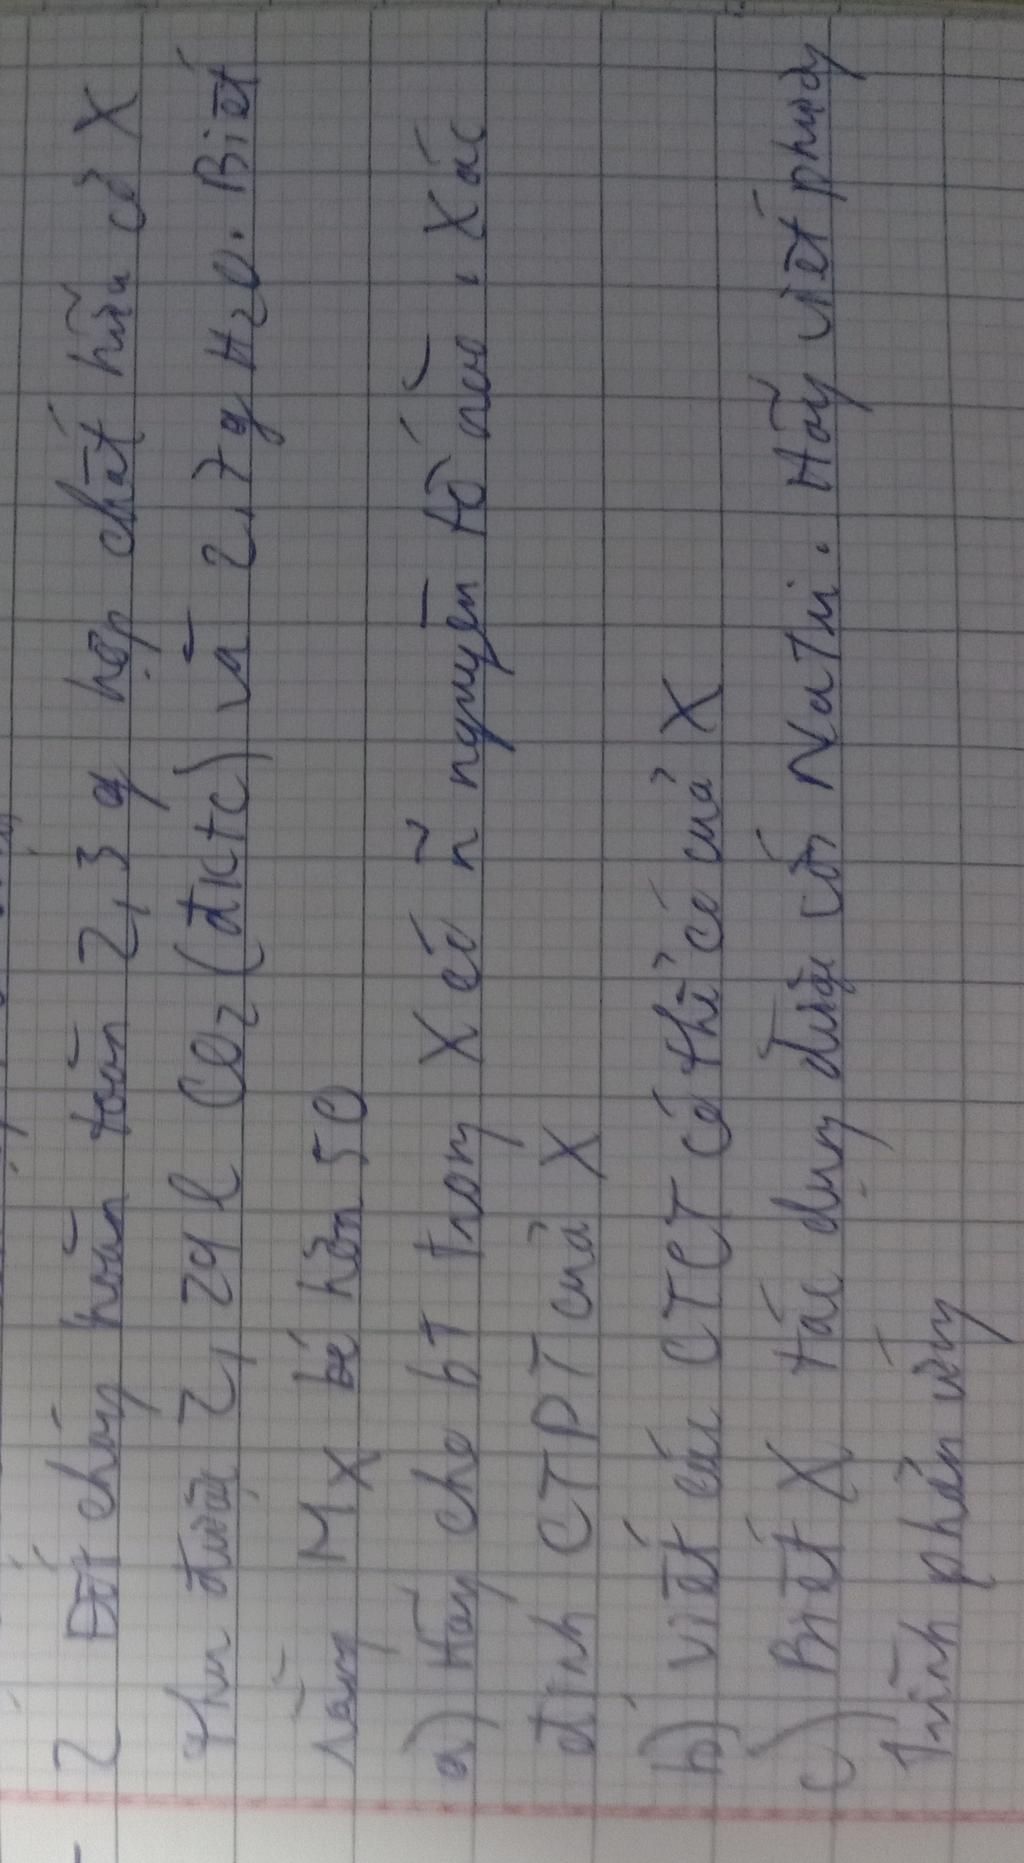 2 Đốt cháy hoàn toàn 2,3 g hợp chất hữu cơ X
thu được 2,24 l CO2 (đktc) và 2,7 g H2O. Biết
rằng MX bé hơn 50
a) Hãy cho bT trong X có n~ nguyên tố nào, Xác
định CTPT của X
b) Viết các CTCT có thể có của X
c) Biết X tác dụng được với NaTri. Hãy viết phương
trình phản ứng